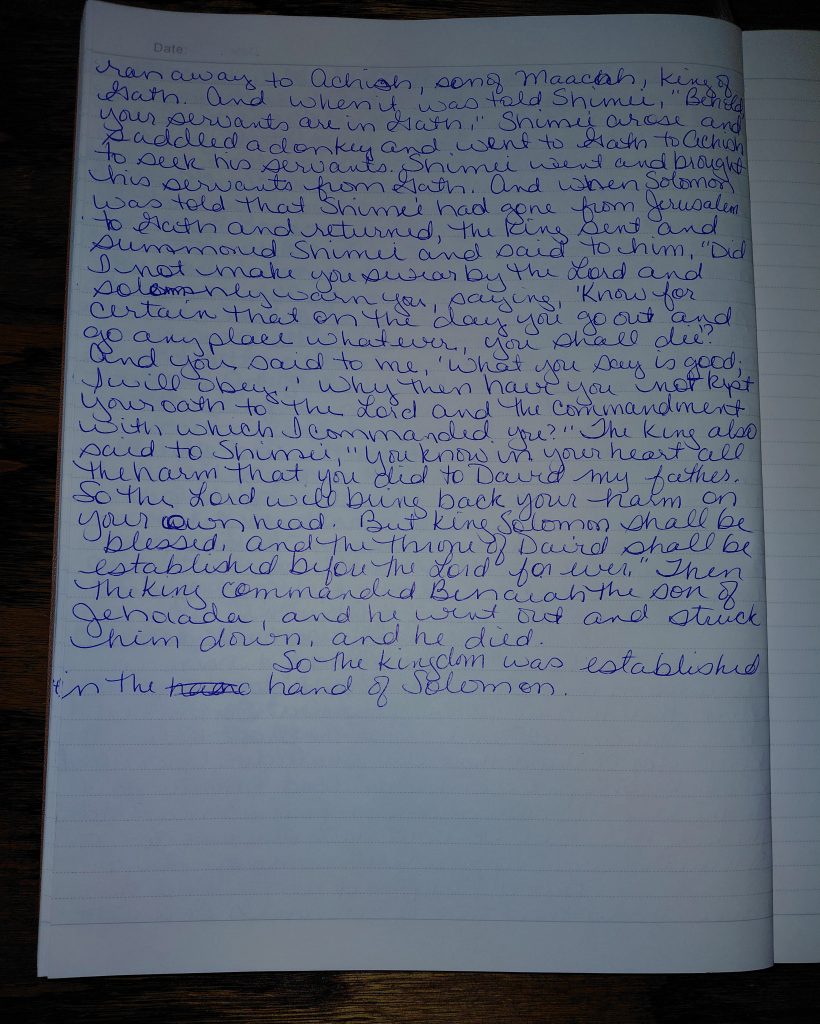 Date:
ran away to Achish, son of Maacah, king of
Gath. And when it was told Shimei, "Behold
your servants are in Gath," Shimei arose and
saddled a donkey and went to Gath to Achish
to seek his servants. Shimei went and brought
his servants from Gath. And when Solomon
was told that Shimei had gone from Jerusalem
to Gath and returned, the king sent and
summoned Shimei and said to him, "Did
I not make you swear by the Lord and
solemnly warn you, saying, 'Know for
certain that on the day you go out and
go any place whatever, you shall die'?
And you said to me, 'What you say is good;
I will obey.' Why then have you not kept
your oath to the Lord and the commandment
with which I commanded you?" The king also
said to Shimei, "You know in your heart all
the harm that you did to David my father.
So the Lord will bring back your harm on
your own head. But king Solomon shall be
blessed, and the throne of David shall be
established before the Lord for ever." Then
the king commanded Benaiah the son of
Jehoiada, and he went out and struck
him down, and he died.
So the kingdom was established
in the hand of Solomon.